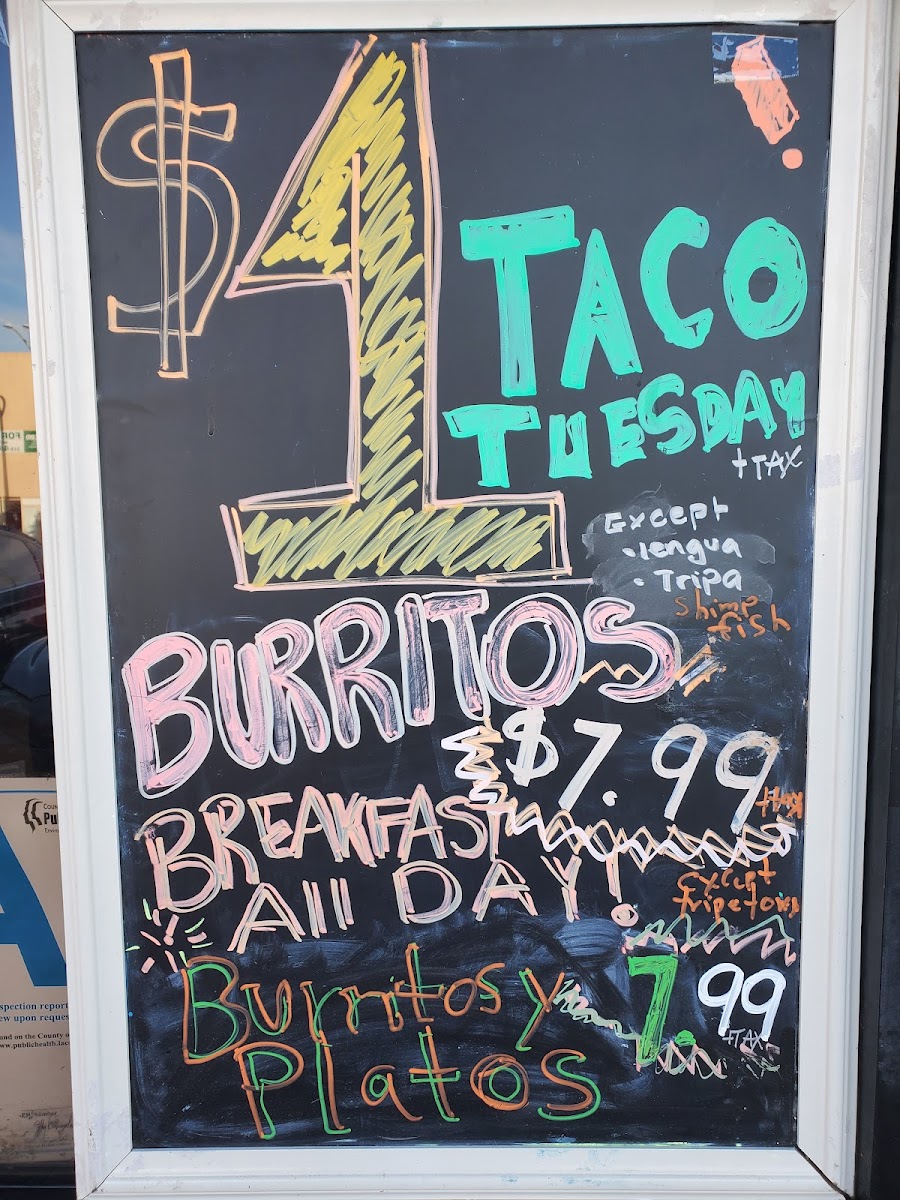 $1
TACO
TUESDAY
+TAX
Except
• lengua
• Tripa
Shimp
fish
BURRITOS
$7.99
+tax
BREAKFAST
All DAY!
except
Burritos y
Platos
7.99
+TAX
FOR
Coun
Pu
Enviro
A
spection report
ew upon reques
and on the County o
www.publichealth.lac